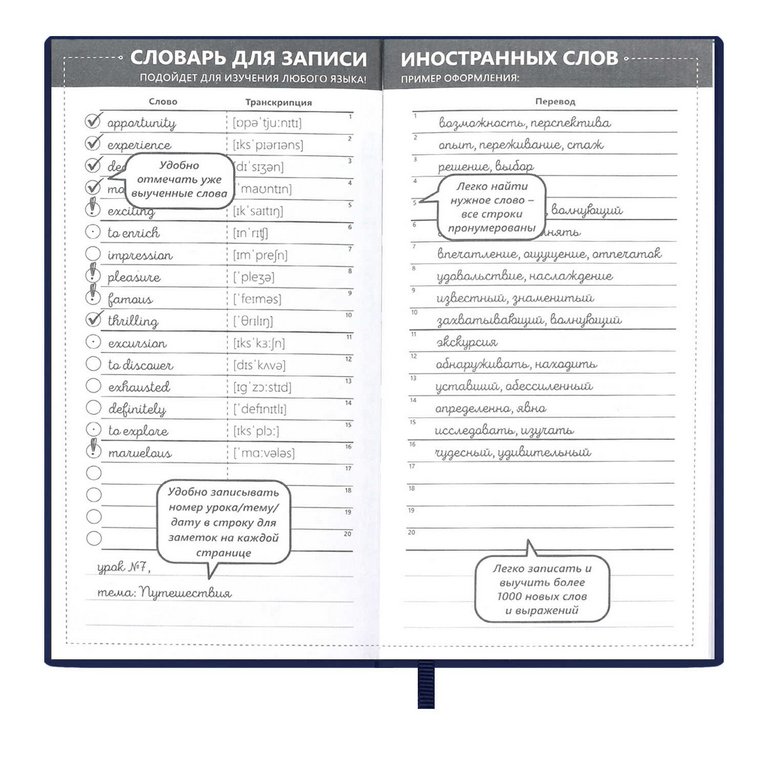 СЛОВАРЬ ДЛЯ ЗАПИСИ ИНОСТРАННЫХ СЛОВ
ПОДОЙДЕТ ДЛЯ ИЗУЧЕНИЯ ЛЮБОГО ЯЗЫКА!
ПРИМЕР ОФОРМЛЕНИЯ:
Слово Транскрипция
opportunity [ɒpəˈtjuːnɪtɪ] 1
experience [ɪksˈpɪərɪəns] 2
[dɪˈsɪʒən] 3
[ˈmaʊntɪn] 4
exciting [ɪkˈsaɪtɪŋ] 5
to enrich [ɪnˈrɪʧ] 6
impression [ɪmˈpreʃn] 7
pleasure [ˈpleʒə] 8
famous [ˈfeɪməs] 9
thrilling [ˈθrɪlɪŋ] 10
excursion [ɪksˈkɜːʃn] 11
to discover [dɪsˈkʌvə] 12
exhausted [ɪgˈzɔːstɪd] 13
definitely [ˈdefɪnɪtlɪ] 14
to explore [ɪksˈplɔː] 15
marvelous [ˈmɑːvələs] 16
17
18
19
20
Удобно
отмечать уже
выученные слова
Удобно записывать
номер урока/тему/
дату в строку для
заметок на каждой
странице
урок №7,
тема: Путешествия
Перевод
1 возможность, перспектива
2 опыт, переживание, стаж
3 решение, выбор
4
5 волнующий
6
7 впечатление, ощущение, отпечаток
8 удовольствие, наслаждение
9 известный, знаменитый
10 захватывающий, волнующий
11 экскурсия
12 обнаруживать, находить
13 уставший, обессиленный
14 определенно, явно
15 исследовать, изучать
16 чудесный, удивительный
17
18
19
20
Легко найти
нужное слово –
все строки
пронумерованы
Легко записать и
выучить более
1000 новых слов
и выражений